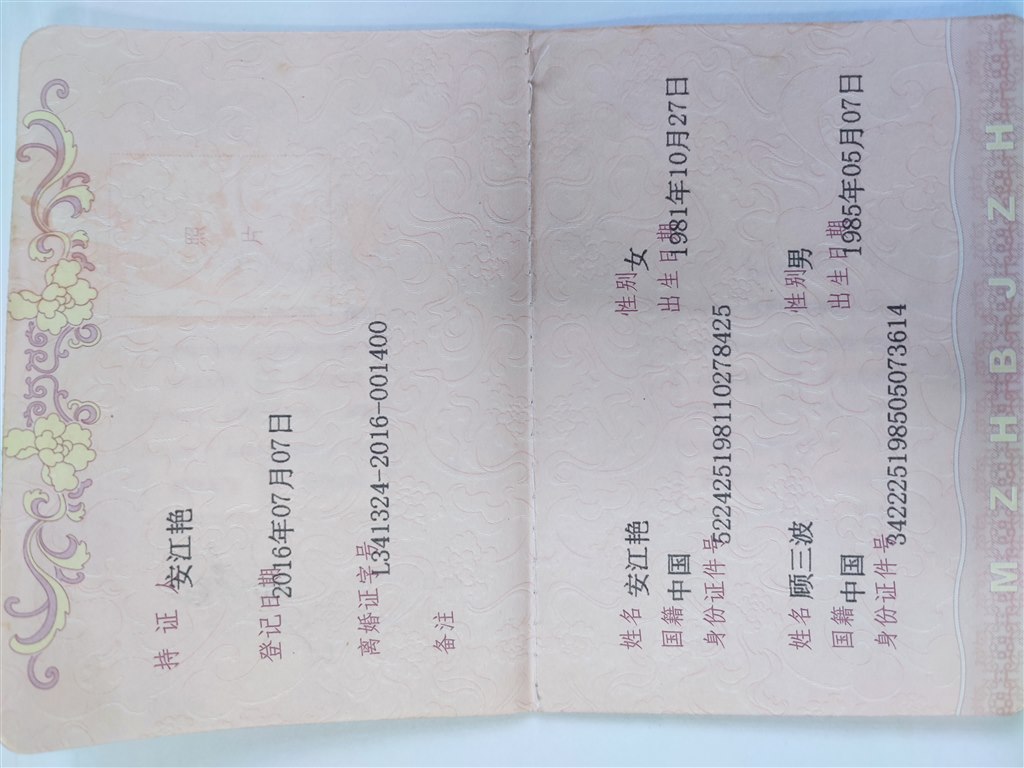 持 证 人安江艳
登记日期2016年07月07日
离婚证字号L341324-2016-001400
备注
照
片
姓名 安江艳 性别女
国籍中国 出生日期1981年10月27日
身份证件号522425198110278425
姓名 顾三波 性别男
国籍中国 出生日期1985年05月07日
身份证件号342225198505073614
MZHBJZH